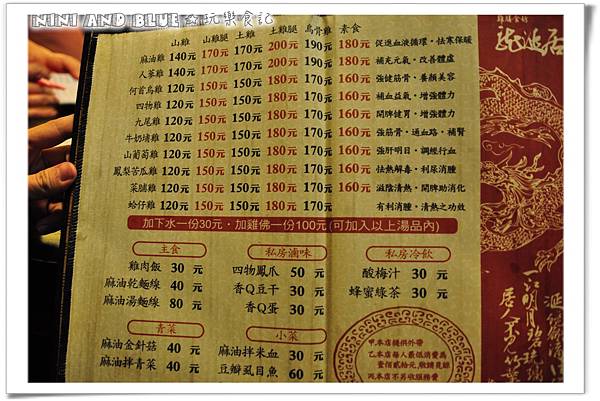 NINI AND BLUE☆玩樂食記
雞膳食坊
龍涎居
山雞 山雞腿 土雞 土雞腿 烏骨雞 素食
麻油雞 140元 170元 170元 200元 190元 180元 促進血液循環·怯寒保暖
人蔘雞 140元 170元 170元 200元 190元 180元 補充元氣·改善體虛
何首烏雞 120元 150元 150元 180元 170元 160元 強健筋骨·養顏美容
四物雞 120元 150元 150元 180元 170元 160元 補血益氣·增強體力
九尾雞 120元 150元 150元 180元 170元 160元 開脾健胃·增強體力
牛奶埔雞 120元 150元 150元 180元 170元 160元 強筋骨·通血路·補腎
山葡萄雞 120元 150元 150元 180元 170元 160元 強肝明目·調經行血
鳳梨苦瓜雞 120元 150元 150元 180元 170元 160元 怯熱解毒·利尿消腫
菜脯雞 120元 150元 150元 180元 170元 160元 滋陰清熱·開脾助消化
蛤仔雞 120元 150元 150元 180元 170元 有利消腫·清熱之功效
加下水一份30元·加雞佛一份100元(可加入以上湯品內)
主食
雞肉飯 30 元
麻油乾麵線 40 元
麻油湯麵線 80 元
私房滷味
四物鳳爪 50 元
香Q豆干 30 元
香Q蛋 30 元
私房冷飲
酸梅汁 30 元
蜂蜜綠茶 30 元
青菜
麻油金針菇 40 元
麻油拌青菜 40 元
小菜
麻油拌米血 30 元
豆瓣虱目魚 60 元
甲.本店提供外帶
乙.本店每人最低消費為
壹佰貳拾元,敬請見諒
丙.本店不另收服務費